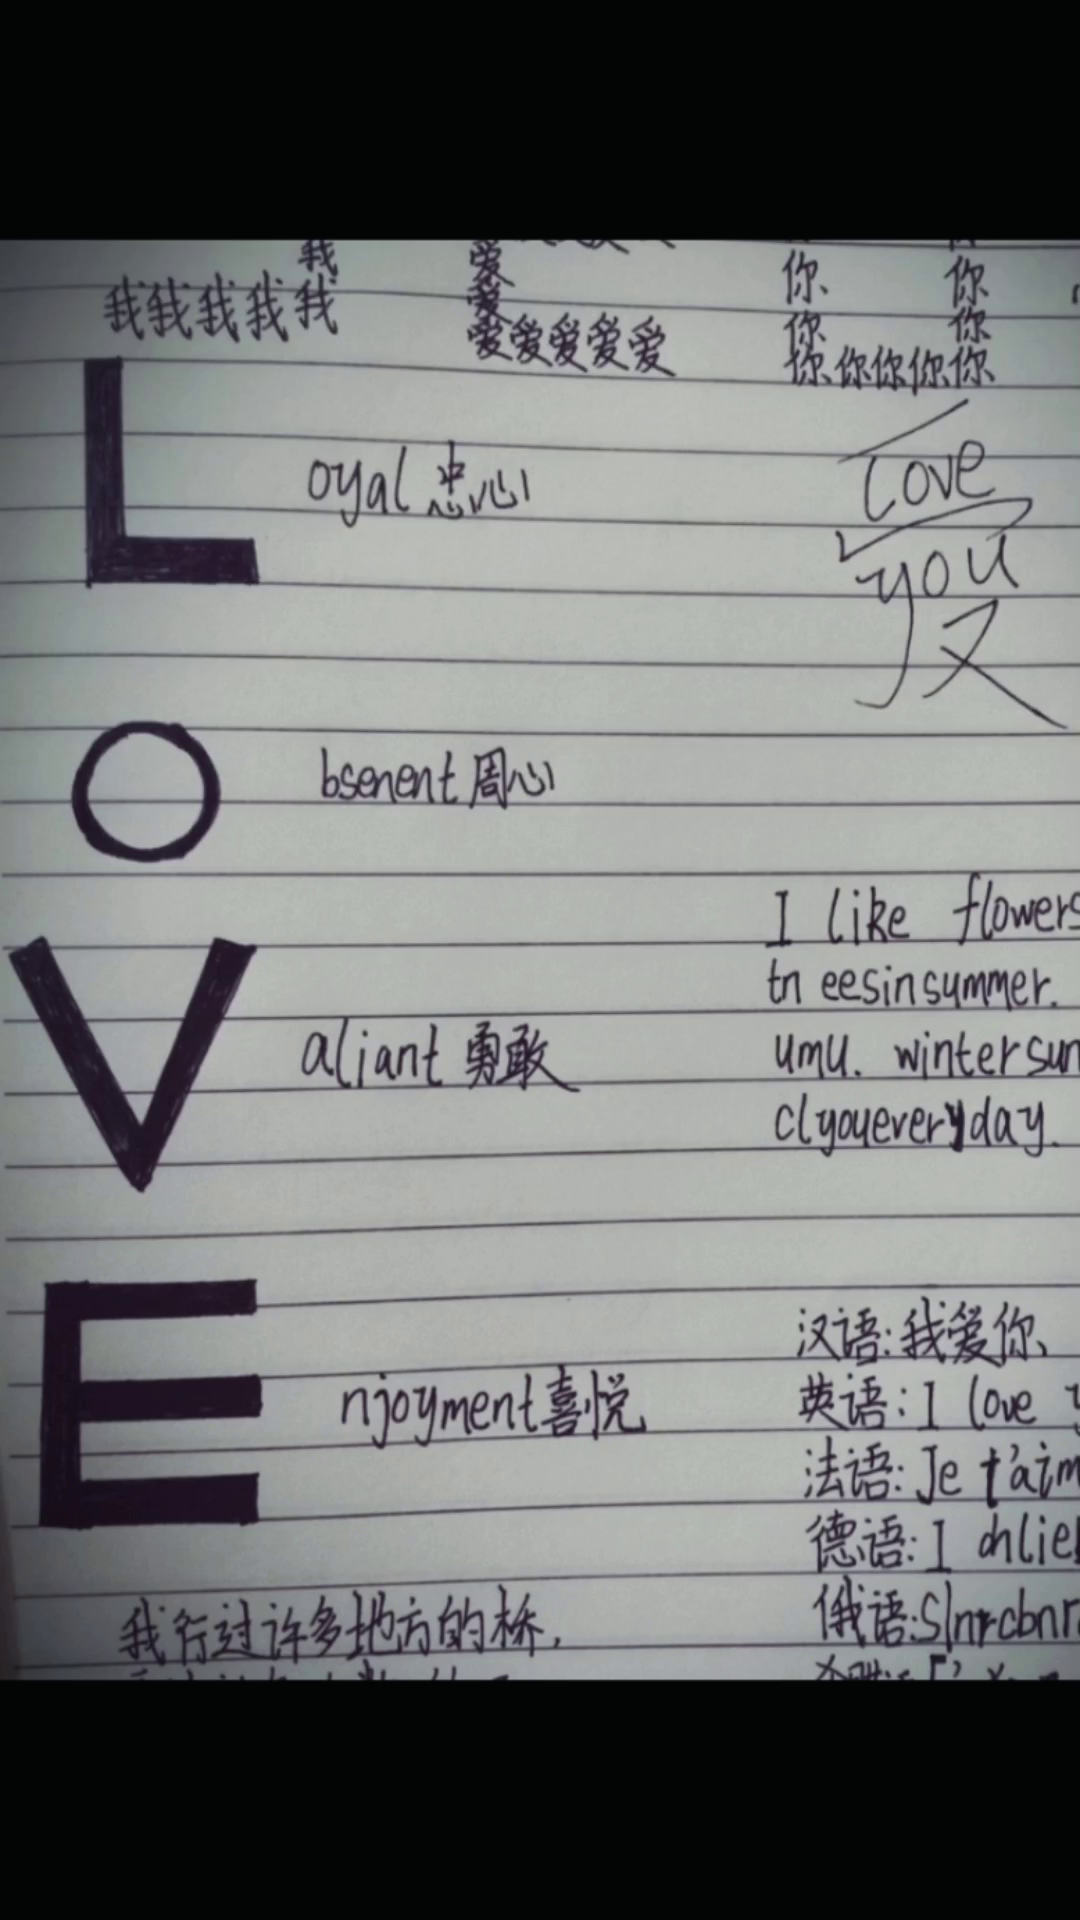 我
我我我我我
爱
爱
爱爱爱爱爱
你 你
你 你
你你你你你
Love
you
L oyal 忠心
O bsenent 周心
V aliant 勇敢
E njoyment 喜悦
I like flowers
tn eesinsummer.
umu. wintersun
clyoueveryday.
汉语:我爱你
英语:I love y
法语:Je t'aim
德语:I chlieb
俄语:Slnrcbnr
我行过许多地方的桥,